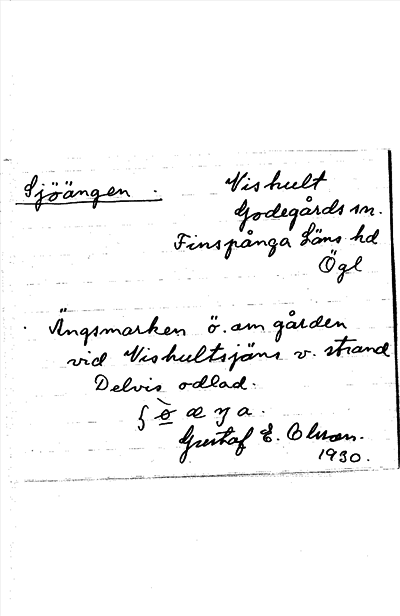 Sjöängen.
Vishult
Godegårds sn.
Finspånga Läns hd
Ögl
Ängsmarken ö. om gården
vid Vishultsjöns v. strand
Delvis odlad.
ʃ ö̀ æ ŋ a.
Gustaf E. Olsson.
1930.